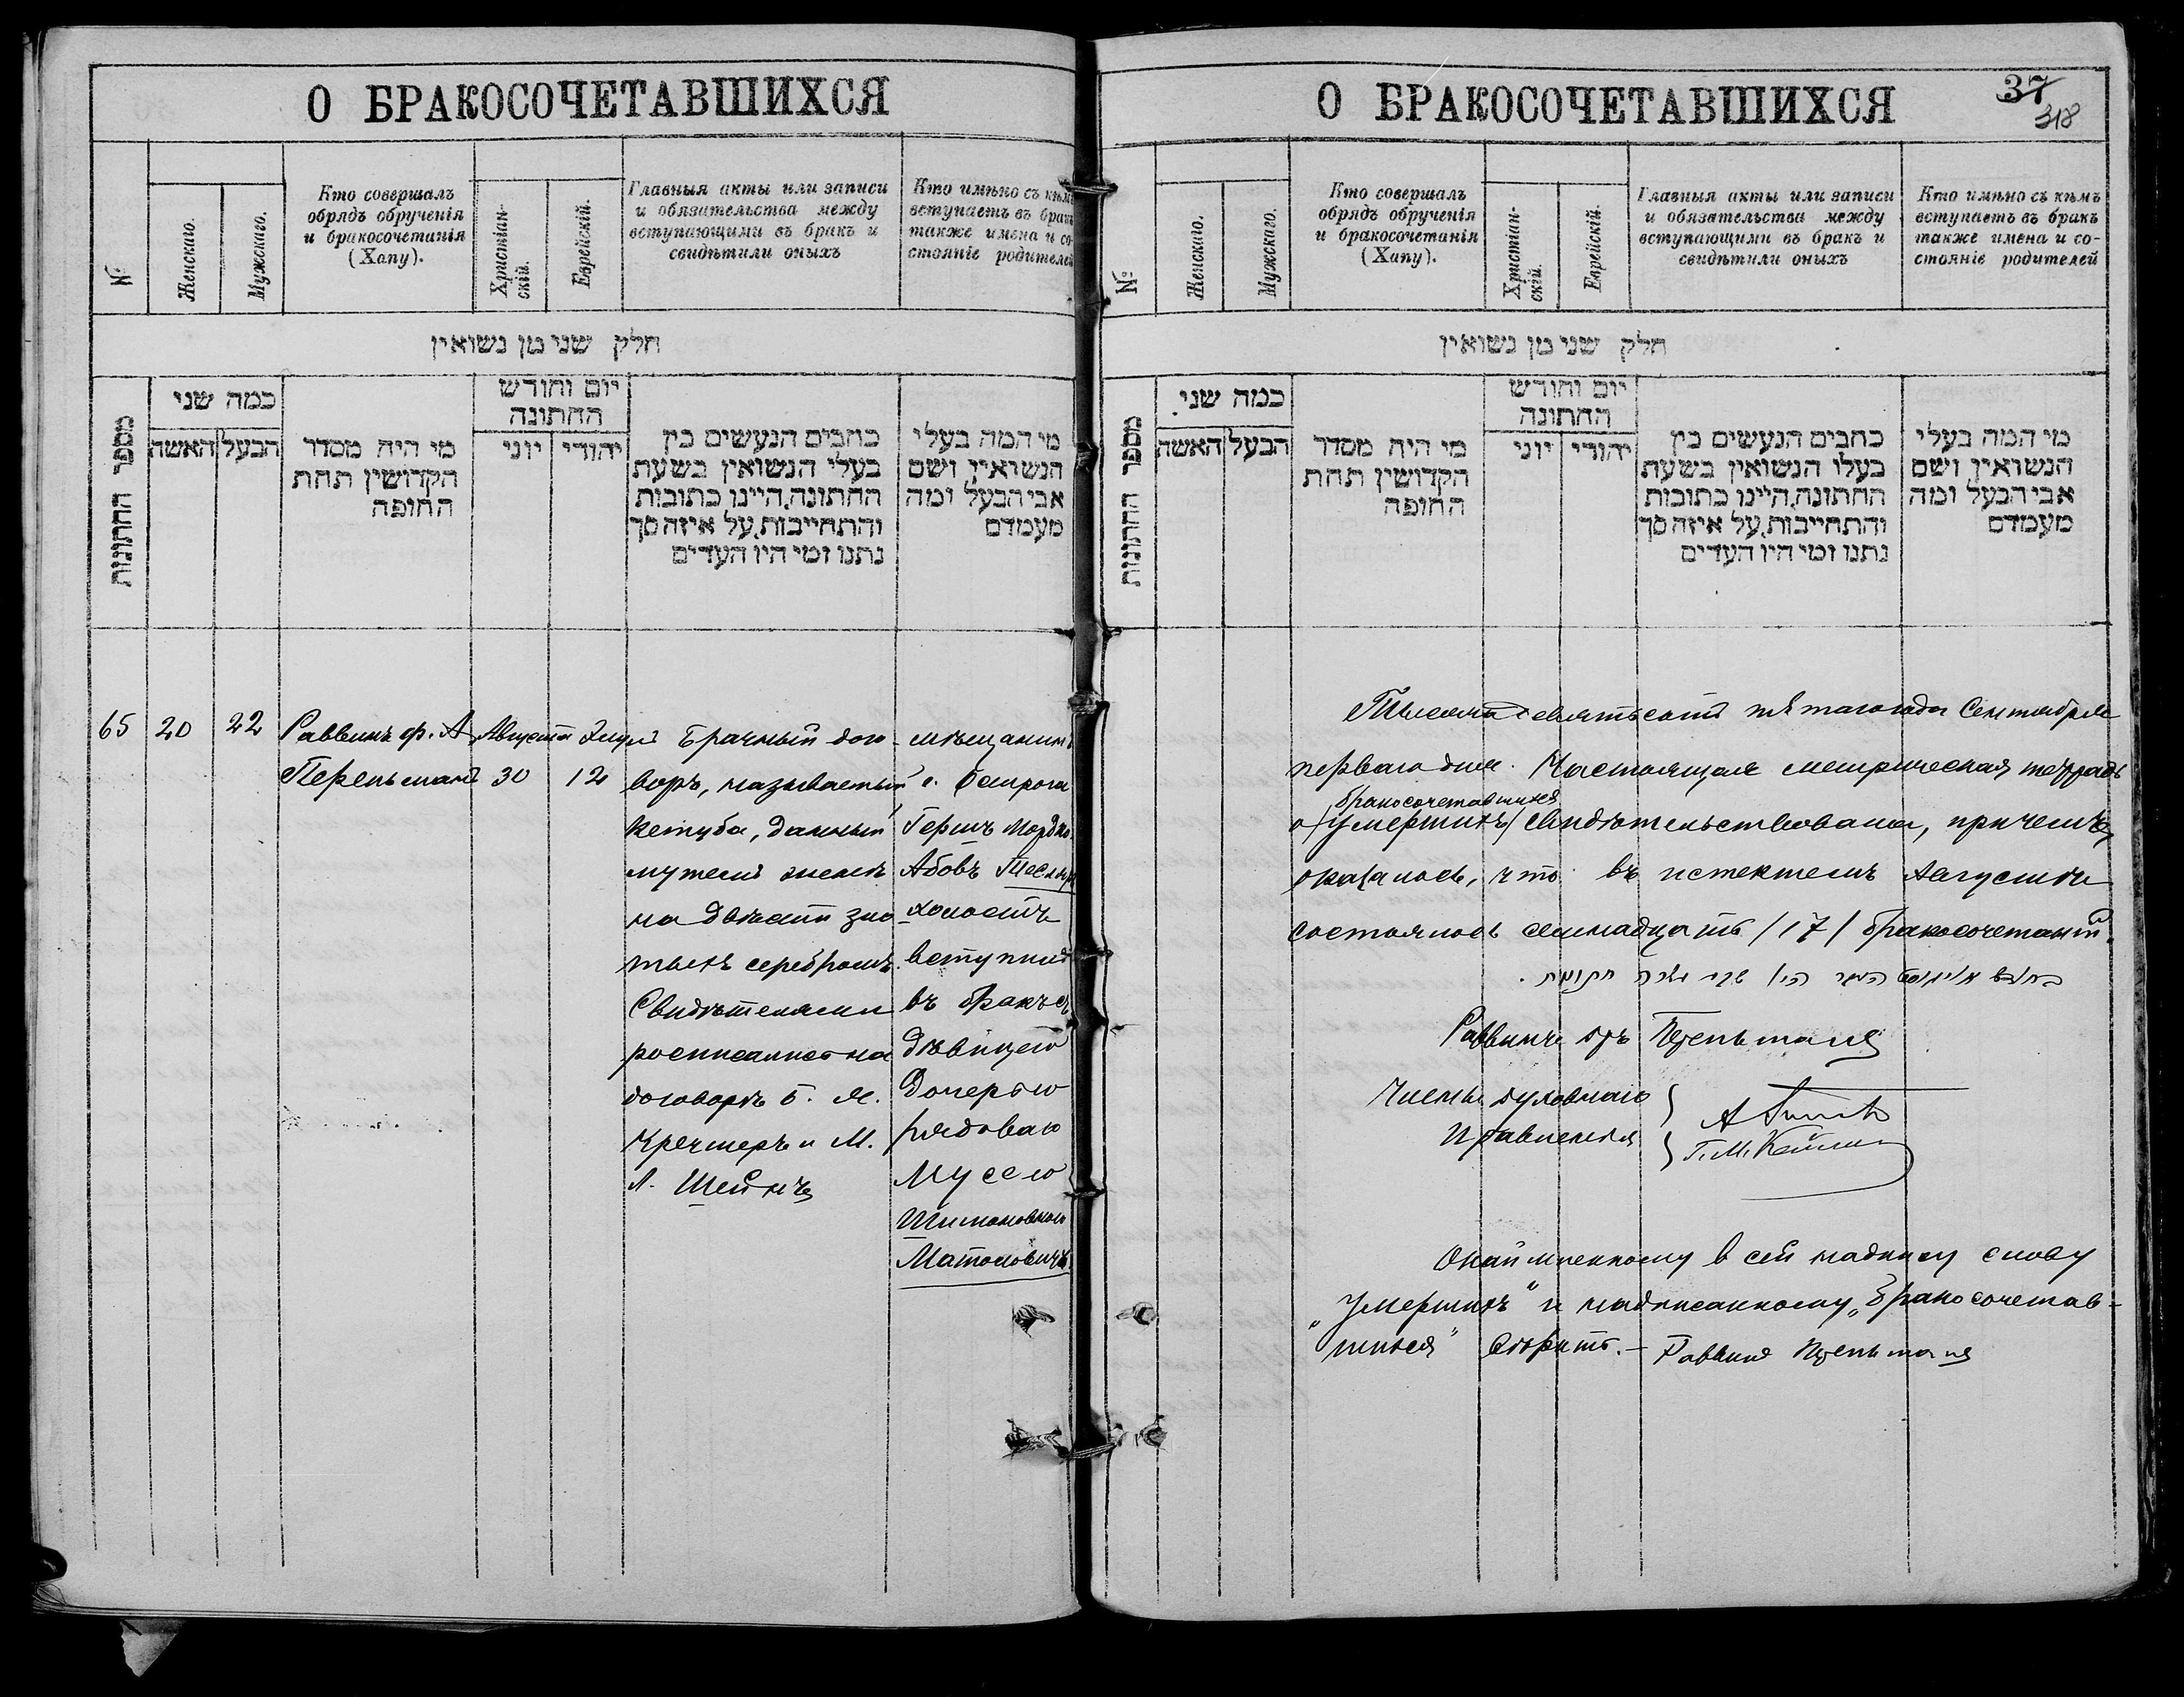 О БРАКОСОЧЕТАВШИХСЯ
№
Женскаго.
Мужскаго.
Кто совершалъ
обрядъ обрученія
и бракосочетанія
(Хапу).
Христіан-
скій.
Еврейскій.
Главныя акты или записи
и обязательства между
вступающими въ бракъ и
свидѣтили оныхъ
Кто имѣно съ кѣмъ
вступаетъ въ бракъ
также имена и со-
стояніе родителей
חלק שני מן נשואין
מספר החתונות
כמה שני
האשה
הבעל
מי היה מסדר
הקדושין תחת
החופה
יום וחודש
החתונה
יוני
יהודי
כתבים הנעשים בין
בעלי הנשואין בשעת
החתונה, היינו כתובות
והתחייבות, על איזה סך
נתנו ומי היו העדים
מי המה בעלי
הנשואין ושם
אבי הבעל ומה
מעמדם
65
20
22
Раввинъ ф. А.
Перельманъ
Августа
30
Элул
12
Брачный дого-
воръ, называемый
кетуба, данный
мужемъ женѣ
на двѣсти зло
тыхъ серебромъ.
Свидѣтелями
росписались на
договорѣ Б. М.
Кречмеръ и М.
Л. Шейнъ
мѣщанинъ
г. Острога
Гершъ Мордко
Абовъ Тесле
холостъ
вступилъ
въ бракъ съ
дѣвицею
дочерью
рядоваго
Мусею
Шимоновною
Матоновичъ
О БРАКОСОЧЕТАВШИХСЯ
37
318
№
Женскаго.
Мужскаго.
Кто совершалъ
обрядъ обрученія
и бракосочетанія
(Хапу).
Христіан-
скій.
Еврейскій.
Главныя акты или записи
и обязательства между
вступающими въ бракъ и
свидѣтили оныхъ
Кто имѣно съ кѣмъ
вступаетъ въ бракъ
также имена и со-
стояніе родителей
חלק שני מן נשואין
מספר החתונות
כמה שני
האשה
הבעל
מי היה מסדר
הקדושין תחת
החופה
יום וחודש
החתונה
יוני
יהודי
כתבים הנעשים בין
בעלי הנשואין בשעת
החתונה, היינו כתובות
והתחייבות, על איזה סך
נתנו ומי היו העדים
מי המה בעלי
הנשואין ושם
אבי הבעל ומה
מעמדם
Тысяча девятьсотъ пятаго года Сентября
перваго дня. Настоящая метрическая тетрадь
бракосочетавшихся
о /умершихъ/ свидѣтельствована, причемъ
оказалось, что въ истекшемъ Августѣ
состоялось семнадцать /17/ бракосочетаній.
היו חתונות.
Раввинъ Перельманъ
Члены духовнаго
Правленія
А
Г. М.
в сей надписи слову
„умершихъ" и надписанному „бракосочетав-
шихся" вѣрить. - Раввинъ Перельманъ